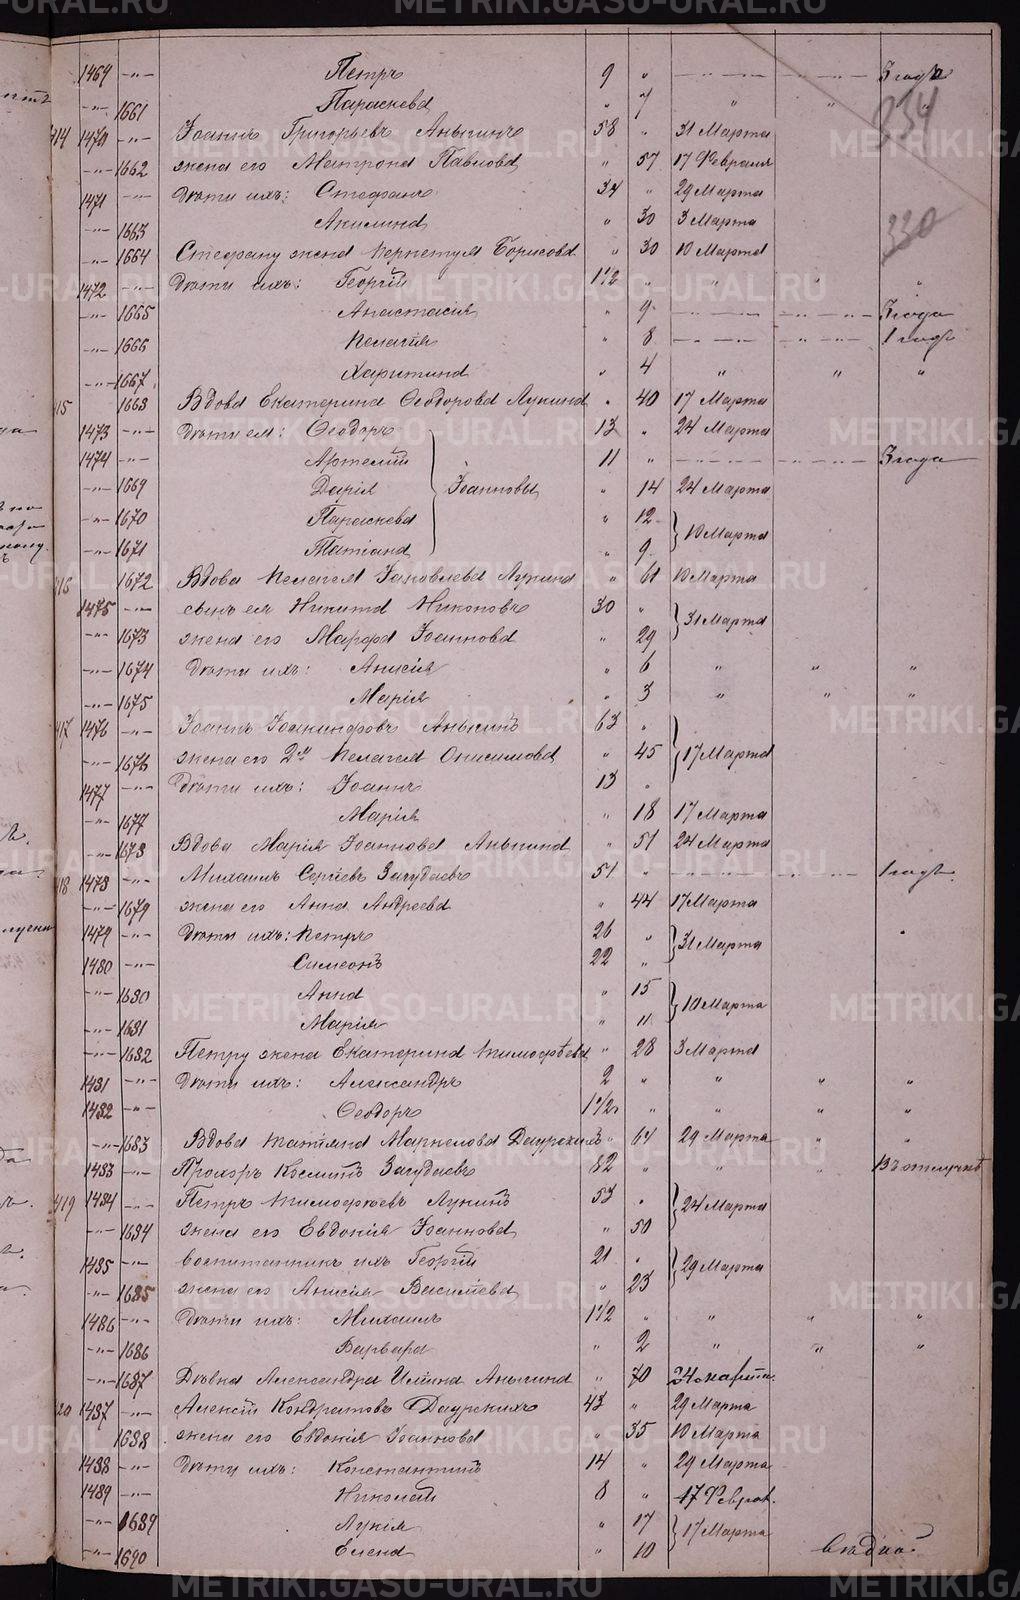 METRIKI.GASO-URAL.RU
1469 —"— Петръ 9 " — — — — 3 года
334
—"— 1661 Параскева " 7 " " "
414 1470 —"— Іоаннъ Григорьевъ Аньгинъ 58 " 31 Марта
—"— 1662 жена его Матрона Павлова " 57 17 Февраля
1471 —"— Дѣти ихъ: Стефанъ 34 " 29 Марта
—"— 1663 Акилина " 30 3 Марта
330
—"— 1664 Стефану жена Перпетуя Борисова " 30 10 Марта
1472 —"— Дѣти ихъ: Георгій 1 1/2 " " " "
—"— 1665 Анастасія " 9 — — — — 3 года
—"— 1666 Пелагія " 8 — — — — 1 годъ
—"— 1667 Харитина " 4 " " "
415 1668 Вдова Екатерина Ѳеодорова Лукина " 40 17 Марта
1473 —"— Дѣти ея: Ѳеодоръ 13 " 24 Марта
1474 —"— Артемій 11 " — — — — 3 года
—"— 1669 Дарія Іоанновы " 14 24 Марта
—"— 1670 Параскева " 12 10 Марта
—"— 1671 Татіана " 9
416 1672 Вдова Пелагея Іаковлева Лукина " 61 10 Марта
1475 —"— сынъ ея Никита Никоновъ 30 " 31 Марта
—"— 1673 жена его Марфа Іоаннова " 29
—"— 1674 Дѣти ихъ: Анисія " 6 " " "
—"— 1675 Марія " 3 " " "
417 1476 —"— Іоаннъ Іоакинфовъ Аньгинъ 63 " 17 Марта
—"— 1676 жена его 2я Пелагея Онисимова " 45
1477 —"— Дѣти ихъ: Іоаннъ 13 "
—"— 1677 Марія " 18 17 Марта
—"— 1678 Вдова Марія Іоаннова Аньгина " 51 24 Марта
418 1478 —"— Михаилъ Сергѣевъ Загудаевъ 51 " — — — — 1 годъ.
—"— 1679 жена его Анна Андреева " 44 17 Марта
1479 —"— Дѣти ихъ: Петръ 26 " 31 Марта
1480 —"— Симеонъ 22 "
—"— 1680 Анна " 15 10 Марта
—"— 1681 Марія " 11
—"— 1682 Петру жена Екатерина Тимофѣева " 28 3 Марта
1481 —"— Дѣти ихъ: Александръ 2 " " " "
1482 —"— Ѳеодоръ 1 1/2 " " " "
—"— 1683 Вдова Татіана Маркелова Даурскихъ " 64 29 Марта " "
1483 —"— Прохоръ Косминъ Загудаевъ 82 " " " Въ отлучкѣ
419 1484 —"— Петръ Тимофеевъ Лукинъ 53 " 24 Марта
—"— 1684 жена его Евдокія Іоаннова " 50
1485 —"— воспитанникъ ихъ Георгій 21 " 29 Марта
—"— 1685 жена его Анисія Василіева " 23
1486 —"— Дѣти ихъ: Михаилъ 1 1/2 " " " "
—"— 1686 Варвара " 2 " " "
—"— 1687 Дѣвка Александра Ильина Аньгина " 70 24 марта.
420 1487 —"— Алексій Кондратовъ Даурскихъ 43 " 29 Марта
1688 жена его Евдокія Іоаннова " 35 10 Марта
1488 —"— Дѣти ихъ: Константинъ 14 " 29 Марта
1489 —"— Николай 8 " 17 Феврал.
—"— 1689 Лукія " 17 17 Марта
—"— 1690 Елена " 10